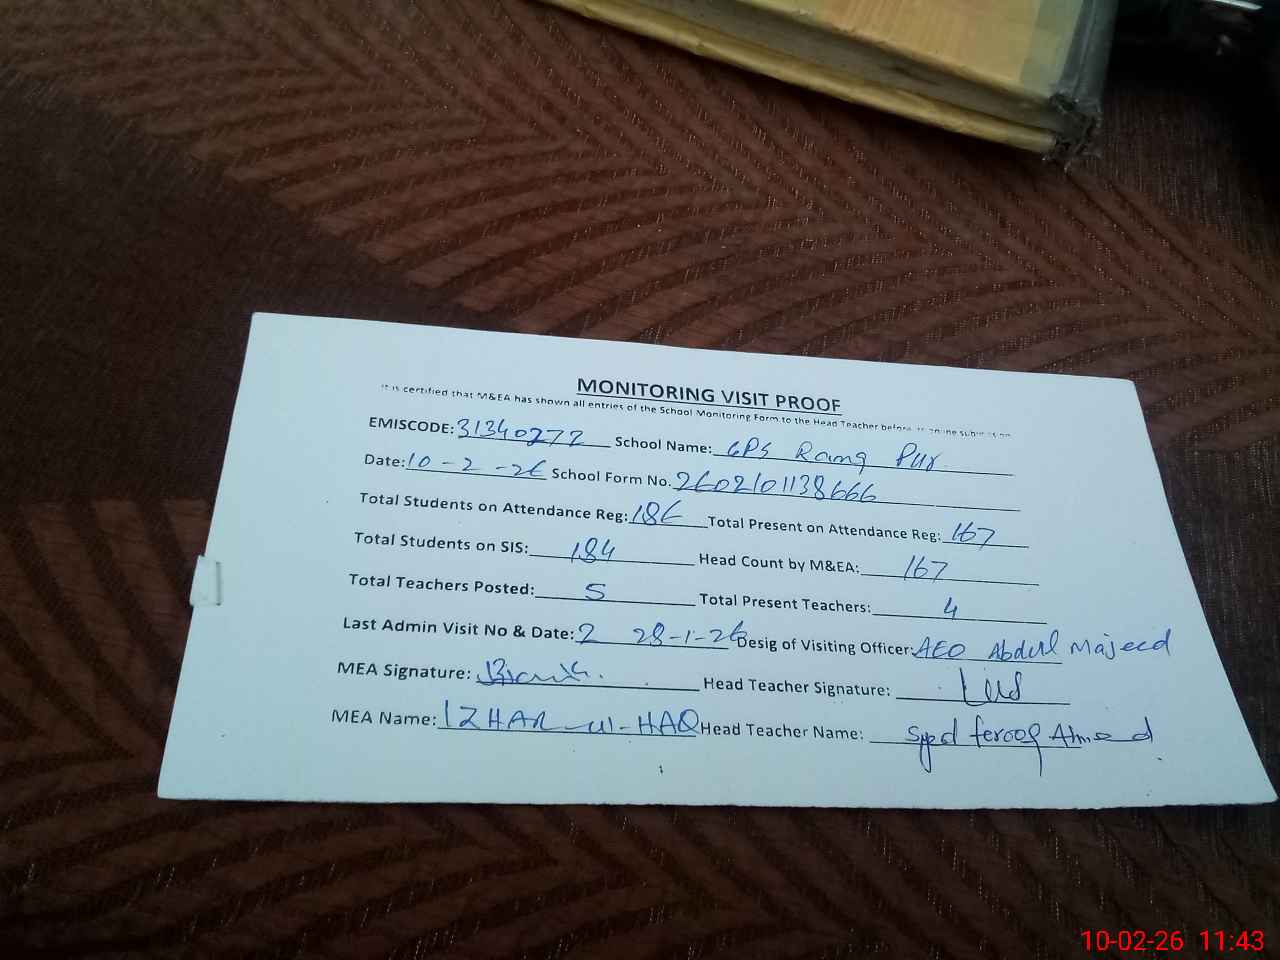 MONITORING VISIT PROOF
It is certified that M&EA has shown all entries of the School Monitoring Form to the Head Teacher before it online submission
EMISCODE: 31340277 School Name: GPS Rang Pur
Date: 10-2-26 School Form No. 2602101138666
Total Students on Attendance Reg: 186 Total Present on Attendance Reg: 167
Total Students on SIS: 184 Head Count by M&EA: 167
Total Teachers Posted: 5 Total Present Teachers: 4
Last Admin Visit No & Date: 2 28-1-26 Desig of Visiting Officer: AEO Abdul Majeed
MEA Signature: Head Teacher Signature:
MEA Name: IZHAR-ul-HAQ Head Teacher Name: Syed ferooq Ahmed
10-02-26 11:43